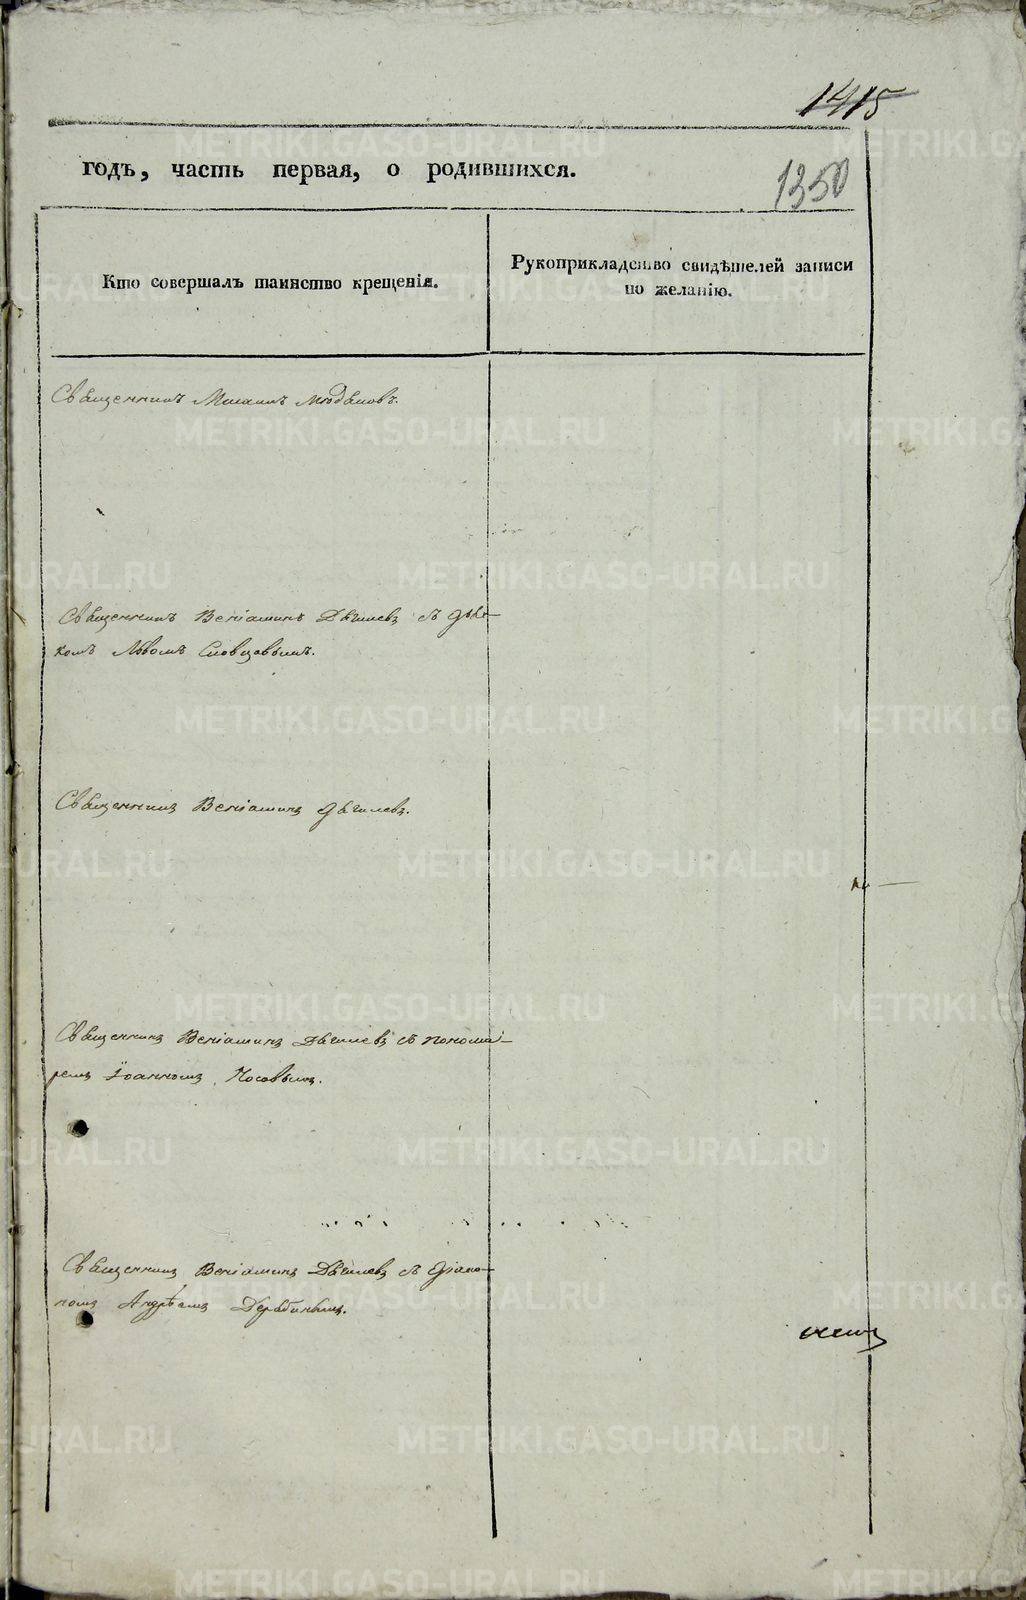 1415
годъ, часть первая, о родившихся.
1350
Кто совершалъ таинство крещенія.
Рукоприкладство свидѣтелей записи
по желанію.
Священникъ Михаилъ
Священникъ Веніаминъ Дягилевъ съ дья-
комъ Львомъ Словцовымъ.
Священникъ Веніаминъ Дягилевъ.
Священникъ Веніаминъ Дягилевъ съ понома-
ремъ Іоанномъ Носовымъ.
Священникъ Веніаминъ Дягилевъ съ діако-
номъ Андреемъ Дерябинымъ.
METRIKI.GASO-URAL.RU